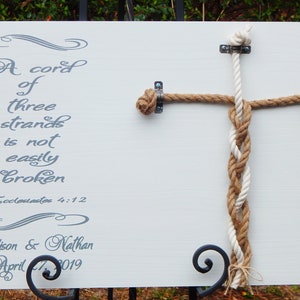 A cord
of
three
strands
is not
easily
broken
Ecclesiastes 4:12
& Nathan
April 27, 2019